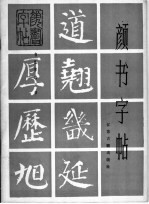 颜书字帖
道翘畿延
厚歷旭